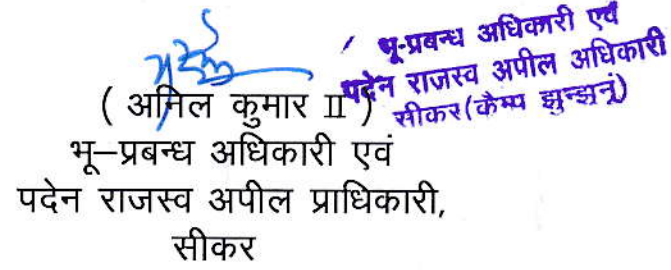 भू-प्रबन्ध अधिकारी एवं
पदेन राजस्व अपील अधिकारी
सीकर(कैम्प झुन्झनूं)
( अनिल कुमार II )
भू–प्रबन्ध अधिकारी एवं
पदेन राजस्व अपील प्राधिकारी,
सीकर